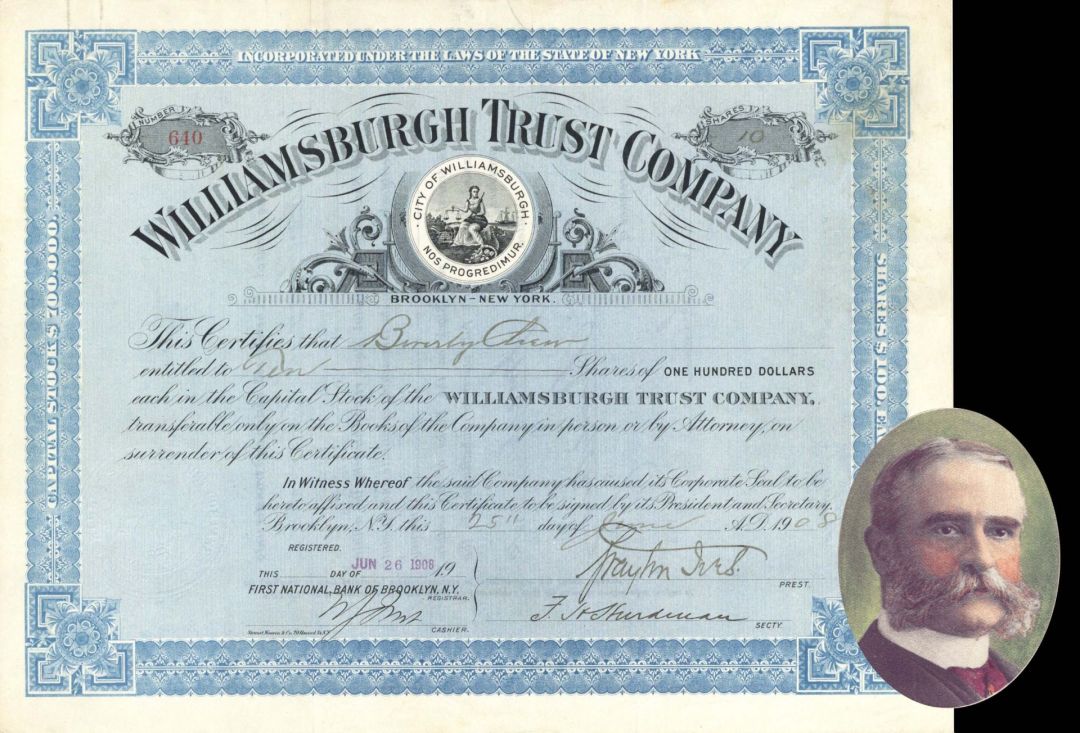 INCORPORATED UNDER THE LAWS OF THE STATE OF NEW YORK
NUMBER
640
SHARES
10
WILLIAMSBURGH TRUST COMPANY
CITY OF WILLIAMSBURGH
NOS PROGREDIMUR.
BROOKLYN - NEW YORK.
CAPITAL STOCK $ 700,000.
SHARES $ 100. EACH
This Certifies that Beverly Chew
entitled to Ten Shares of ONE HUNDRED DOLLARS
each in the Capital Stock of the WILLIAMSBURGH TRUST COMPANY,
transferable only on the Books of the Company in person or by Attorney, on
surrender of this Certificate.
In Witness Whereof the said Company has caused its Corporate Seal to be
hereto affixed and this Certificate to be signed by its President and Secretary,
Brooklyn, N.Y. this 25" day of June A.D. 1908
REGISTERED.
THIS DAY OF JUN 26 1908 19
FIRST NATIONAL BANK OF BROOKLYN, N.Y.
REGISTRAR.
CASHIER.
Brayton Ives. PREST.
SECTY.